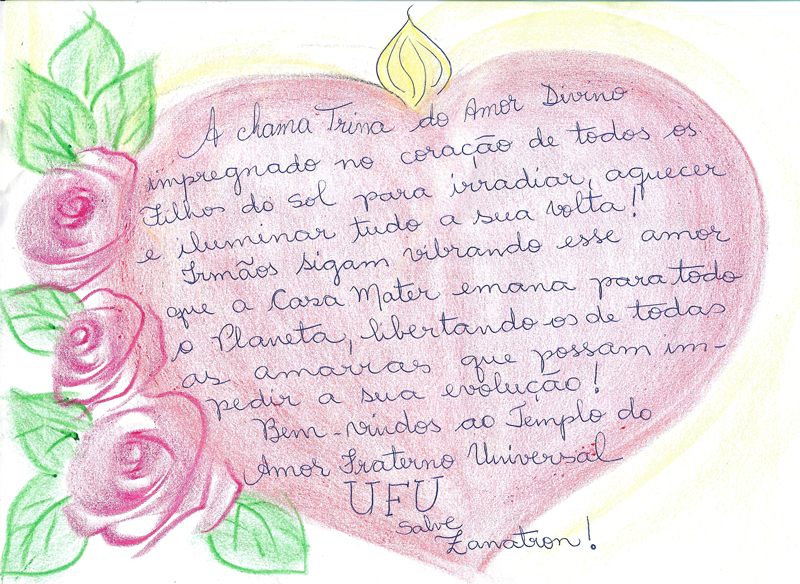 A chama Trina do Amor Divino
impregnado no coração de todos os
Filhos do Sol para irradiar, aquecer
e iluminar tudo a sua volta!
Irmãos sigam vibrando esse amor
que a Casa Mater emana para todo
o Planeta, libertando-os de todas
as amarras que possam im-
pedir a sua evolução!
Bem-vindos ao Templo do
Amor Fraterno Universal
UFU
Salve
Zanatron!